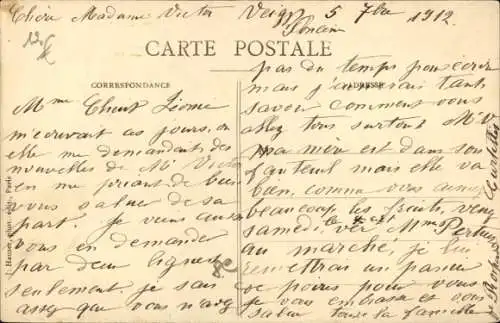 Chère Madame Victor Veigy 5 7bre 1912
CARTE POSTALE
CORRESPONDANCE
ADRESSE
Mme Léonie
m'écrivait ces jours, où
elle me demandait des
nouvelles de Mr Victor
en me priant de bien
vous saluer de sa
part. Je viens aussi
vous en demander
par deux lignes
seulement. je sais
assez que vous n'avez
pas du temps pour écrire
mais j'aimerais tant
savoir comment vous
allez tous surtout Mr V
Ma mère est dans son
fauteuil mais elle va
bien, comme vous aimez
beaucoup les fruits, venez
samedi, le vers Mme
au marché, je lui
remettrai un panier
de poires pour vous
Je vous embrasse et vous
salue toute la famille